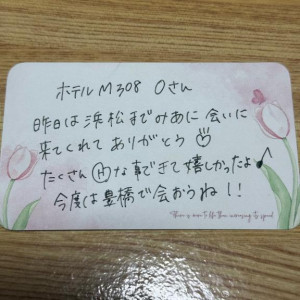 ホテルM308 Oさん
昨日は浜松までみあに会いに
来てくれてありがとう♡
たくさんⒽな事できて嬉しかったよ♪
今度は豊橋で会おうね！！